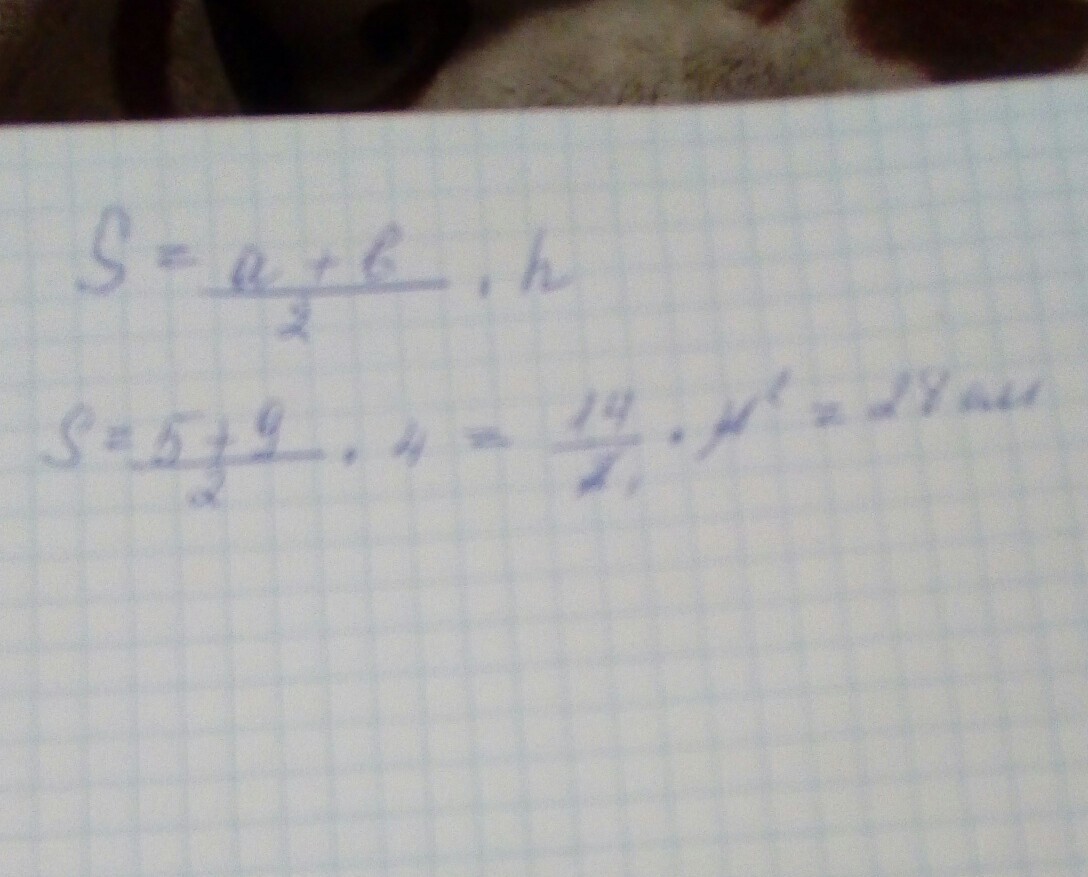 S = a + b / 2 · h
S = 5 + 9 / 2 · 4 = 14 / 2 1 · 4 2 = 28 см